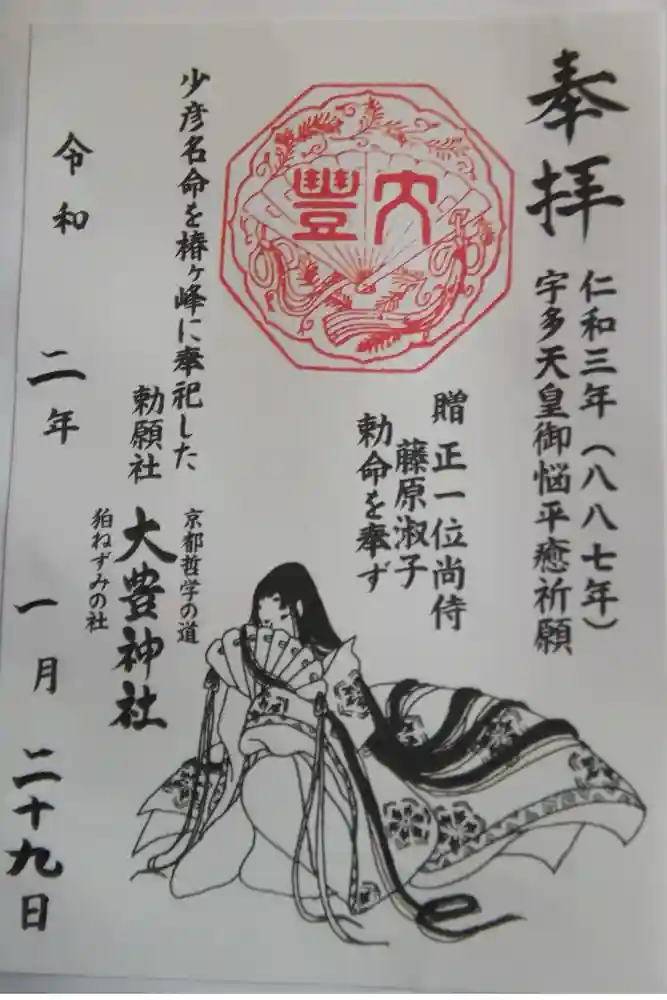 奉拝
仁和三年（八八七年）
宇多天皇御悩平癒祈願
大豐
贈正一位尚侍
藤原淑子
勅命を奉ず
少彦名命を椿ヶ峰に奉祀した
勅願社
京都哲学の道
大豊神社
狛ねずみの社
令和二年一月二十九日